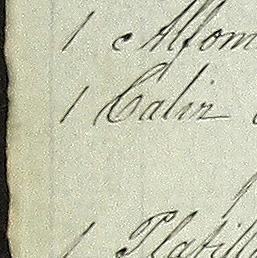 1 Alfom
1 Caliz
1 Platill